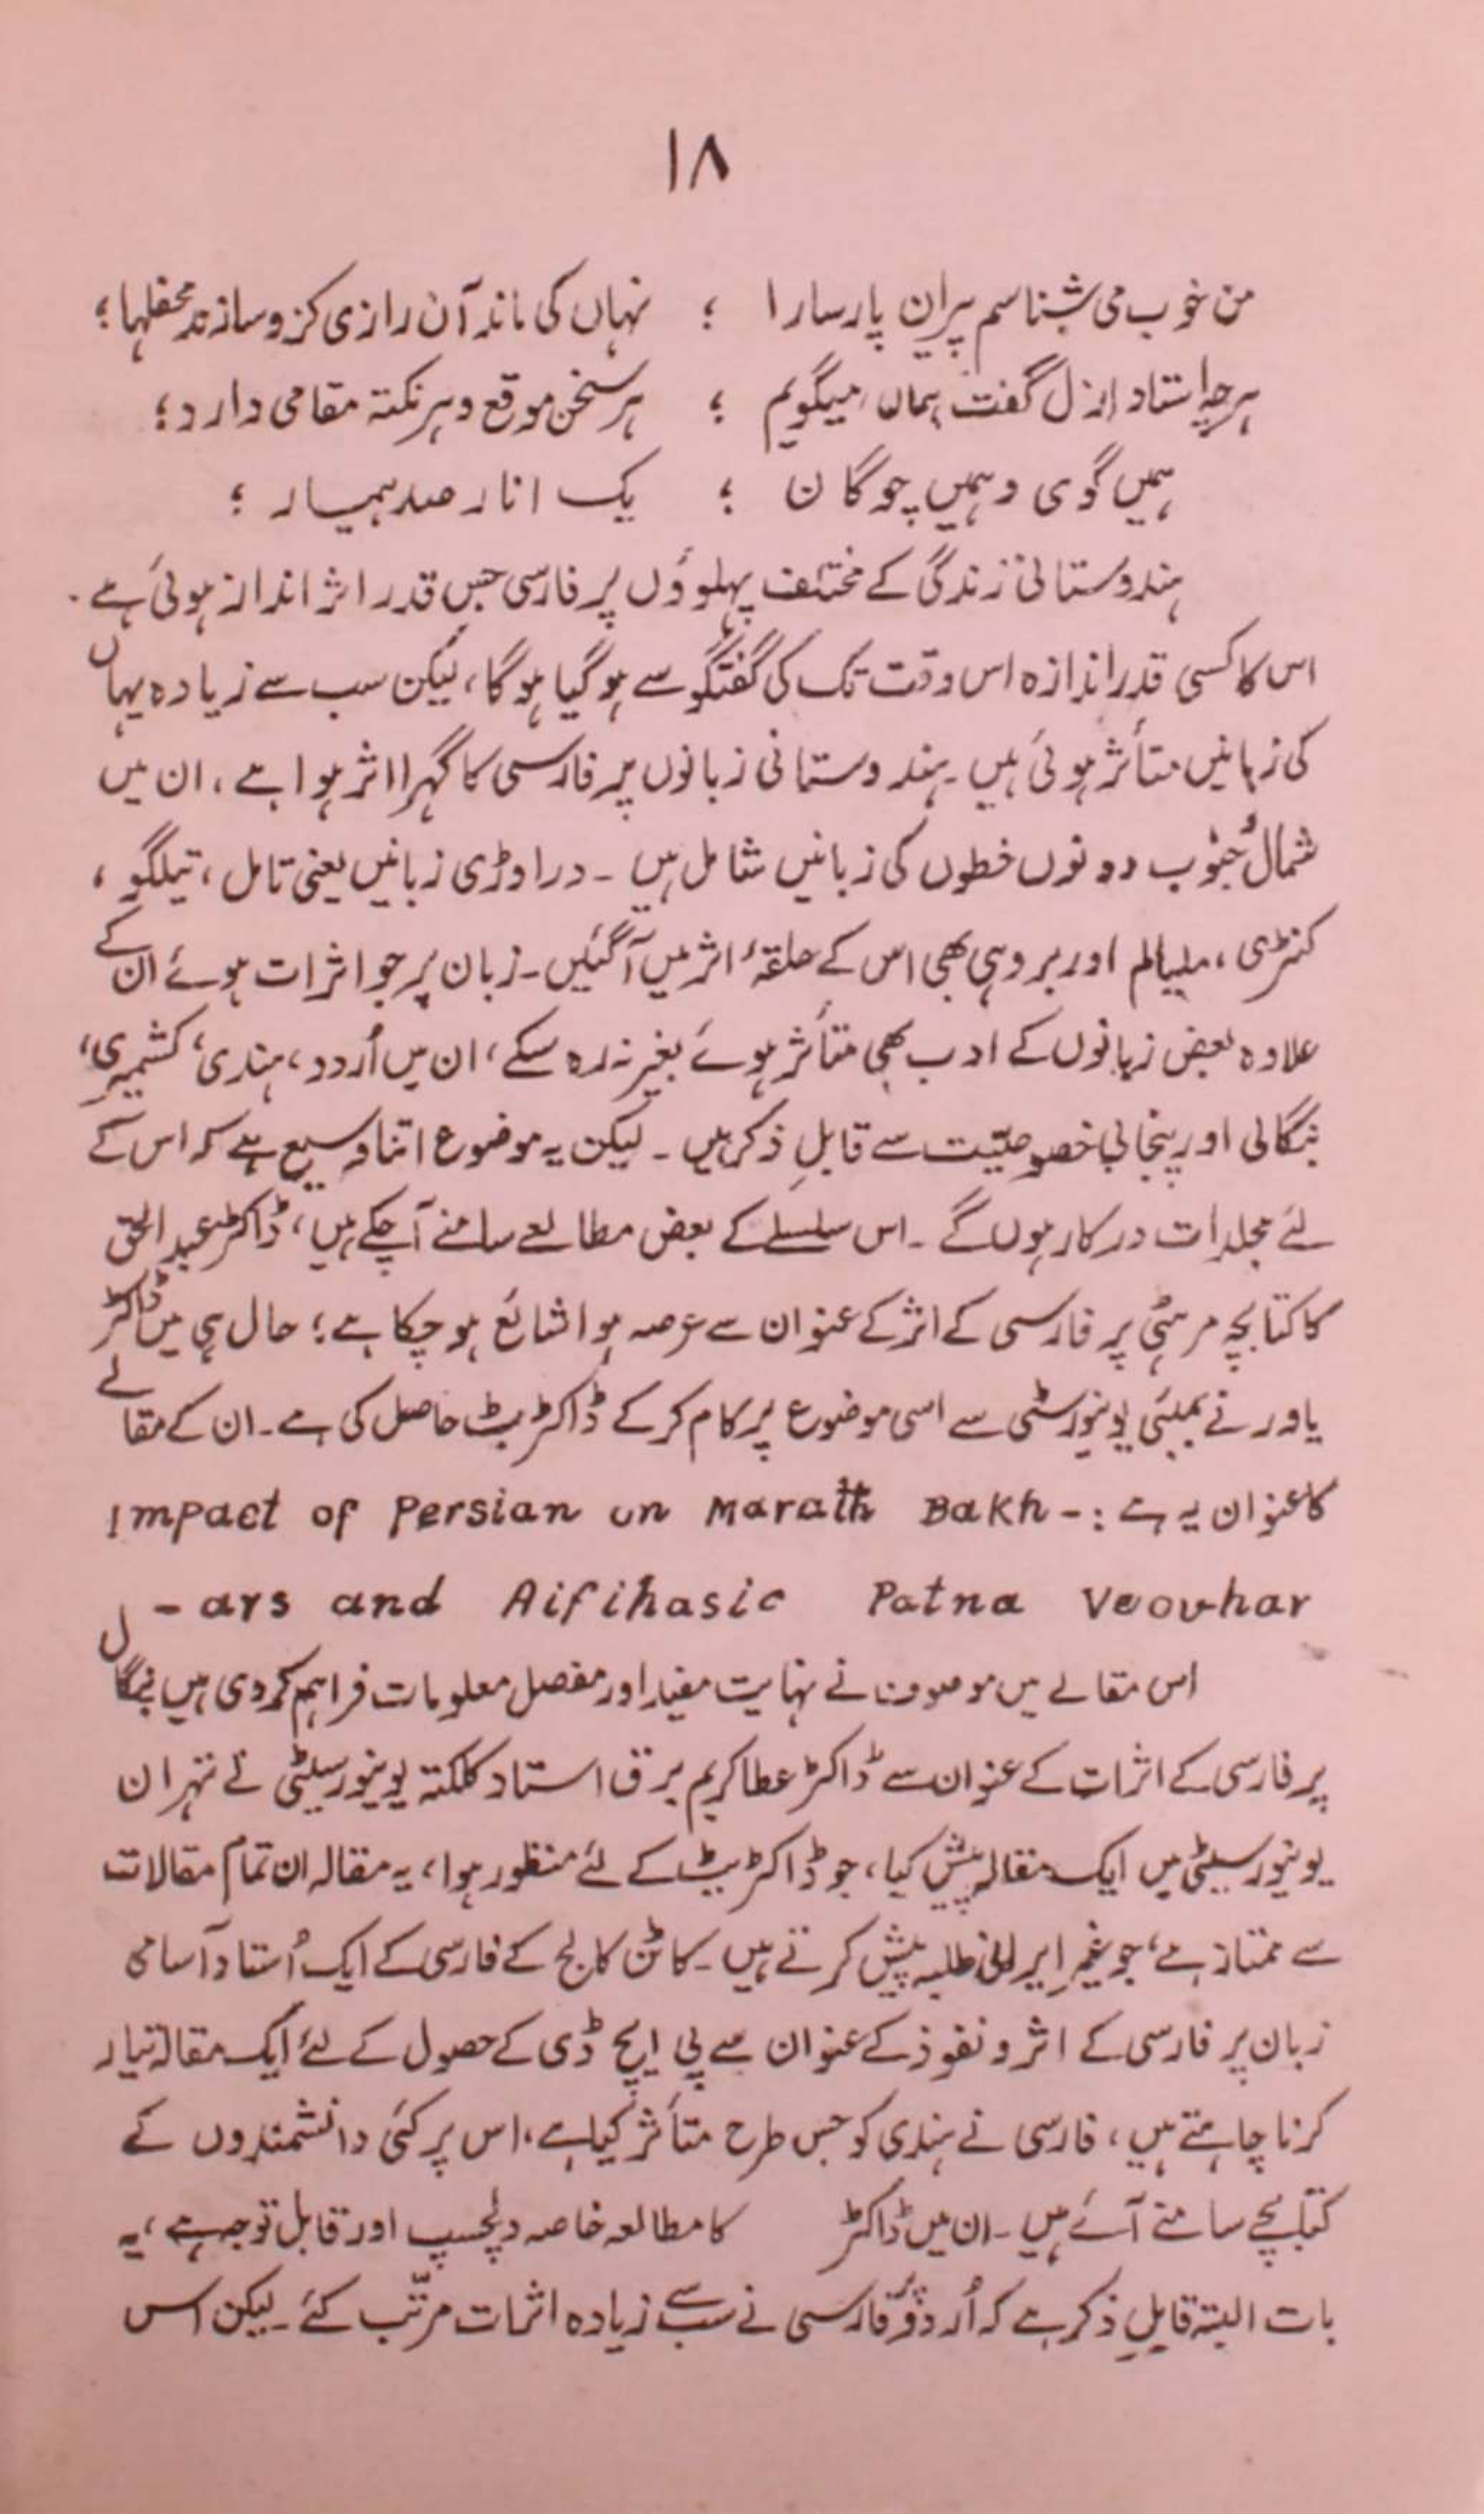 ۱۸
من خوب می شناسم پیران پارسا را ؛ نہاں کی ماند آن رازی کزو سازند محفلہا ؛
ہرچہ استاد ازل گفت ہماں میگویم ؛ ہر سخن موقع و ہر نکتہ مقامی دارد ؛
ہمیں گوی و ہمیں چوگان ؛ یک انار صد بیمار ؛
ہندوستانی زندگی کے مختلف پہلوؤں پر فارسی جس قدر اثر انداز ہوئی ہے۔
اس کا کسی قدر اندازہ اس وقت تک کی گفتگو سے ہو گیا ہوگا، لیکن سب سے زیادہ یہاں
کی زبانیں متأثر ہوئی ہیں۔ ہندوستانی زبانوں پر فارسی کا گہرا اثر ہوا ہے، ان میں
شمال و جنوب دونوں خطوں کی زبانیں شامل ہیں ۔ دراوڑی زبانیں یعنی تامل، تیلگو،
کنڑی، ملیالم اور بروہی بھی اس کے حلقۂ اثر میں آگئیں۔ زبان پر جو اثرات ہوئے ان کے
علاوہ بعض زبانوں کے ادب بھی متأثر ہوئے بغیر نہ رہ سکے، ان میں اُردو، ہندی، کشمیری،
بنگالی اور پنجابی خصوصیّت سے قابلِ ذکر ہیں ۔ لیکن یہ موضوع اتنا وسیع ہے کہ اس کے
لئے مجلدات درکار ہوں گے ۔ اس سلسلے کے بعض مطالعے سامنے آچکے ہیں، ڈاکٹر عبدالحق
کا کتابچہ مرہٹی پر فارسی کے اثر کے عنوان سے عرصہ ہوا شائع ہو چکا ہے؛ حال ہی میں ڈاکٹر
یاور نے بمبئی یونیورسٹی سے اسی موضوع پر کام کر کے ڈاکٹریٹ حاصل کی ہے۔ ان کے مقالے
کا عنوان یہ ہے :- Impact of Persian on Marath Bakh
- ars and Aifihasic Patna Veovhar
اس مقالے میں موصوف نے نہایت مفید اور مفصل معلومات فراہم کر دی ہیں بنگال
پر فارسی کے اثرات کے عنوان سے ڈاکٹر عطا کریم برق استاد کلکتہ یونیورسیٹی نے تہران
یونیورسیٹی میں ایک مقالہ پیش کیا، جو ڈاکٹریٹ کے لئے منظور ہوا، یہ مقالہ ان تمام مقالات
سے ممتاز ہے، جو غیرِ ایرانی طلبہ پیش کرتے ہیں ۔ کاٹن کالج کے فارسی کے ایک اُستاد آسامی
زبان پر فارسی کے اثر و نفوذ کے عنوان سے پی ایچ ڈی کے حصول کے لئے ایک مقالہ تیار
کرنا چاہتے ہیں، فارسی نے ہندی کو جس طرح متأثر کیا ہے، اس پر کئی دانشمندوں کے
کتابچے سامنے آئے ہیں ۔ ان میں ڈاکٹر کا مطالعہ خاصہ دلچسپ اور قابل توجہ ہے، یہ
بات البتہ قابلِ ذکر ہے کہ اُردو پر فارسی نے سب سے زیادہ اثرات مرتّب کئے ۔ لیکن اس